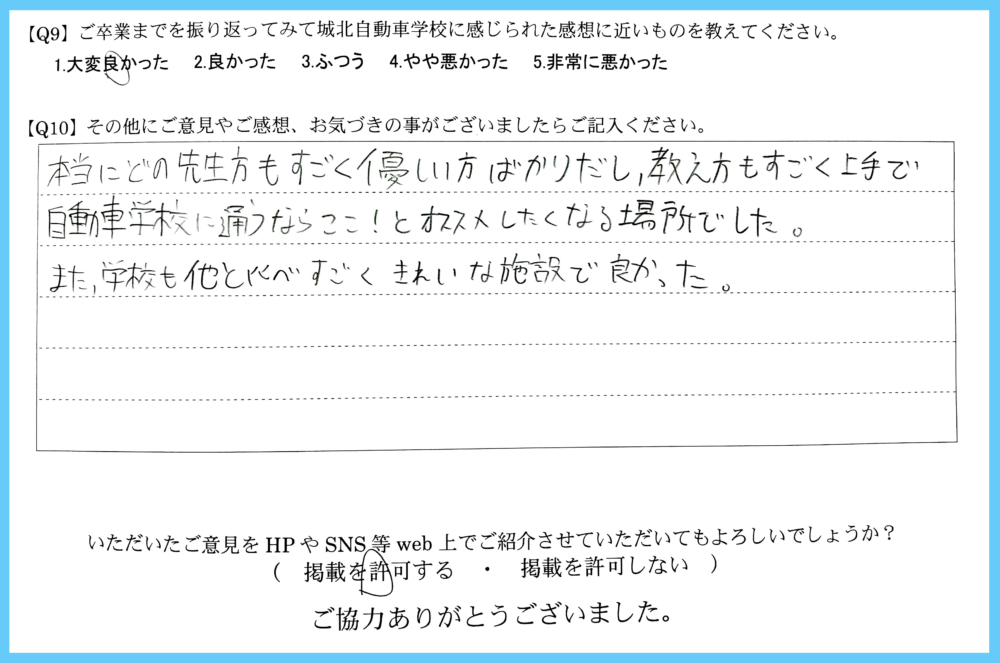 【Q9】ご卒業までを振り返ってみて城北自動車学校に感じられた感想に近いものを教えてください。
1.大変良かった 2.良かった 3.ふつう 4.やや悪かった 5.非常に悪かった
【Q10】その他にご意見やご感想、お気づきの事がございましたらご記入ください。
本当にどの先生方もすごく優しい方ばかりだし,教え方もすごく上手で
自動車学校に通うならここ！とオススメしたくなる場所でした。
また,学校も他と比べすごくきれいな施設で良かった。
いただいたご意見を HP や SNS 等 web 上でご紹介させていただいてもよろしいでしょうか？
（ 掲載を許可する ・ 掲載を許可しない ）
ご協力ありがとうございました。